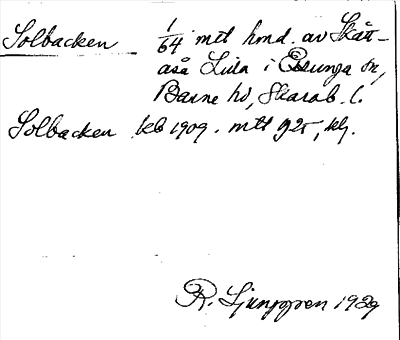 Solbacken 1/64 mtl hmd. av Skått-
aså Lilla i Essunga sn,
Barne hd, Skarab. l.
Solbacken kb 1909. mtl 925, klj.
R. Ljunggren 1929